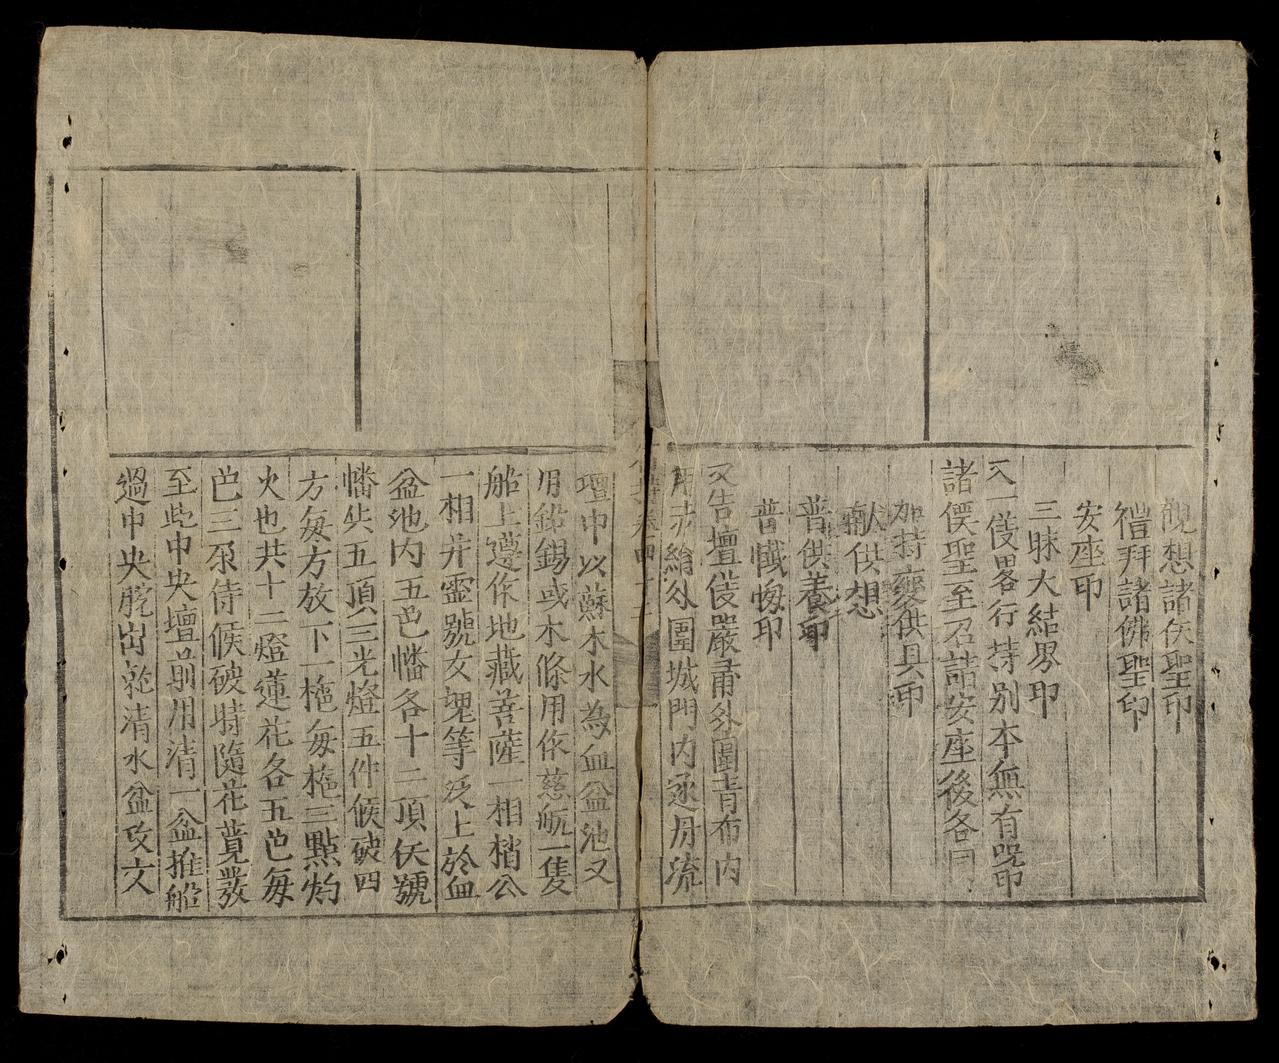 觀想諸天聖印
禮拜諸佛聖印
安座印
三昧大結界印
又一儀畧行持別本無有咒印
諸僊聖至召詰安座後各同
加持變供具印
献供想
普供養印
普懺悔印
又告壇儀嚴肅外圍青布內
用赤綃外圍城門內逐舟流
壇中以蘇木水為血盆池又
用鉛錫或木條用依慈航一隻
船上遵依地藏菩薩一相梢公
一相并靈號女魂等泛上於血
盆池內五色幡各十二頂天號
幡柒五頂三光燈五件候破四
方每方放下一桅每桅三點灼
火也共十二燈蓮花各五芭每
芭三朶侍候破時隨花蕒發
至此中央壇前用清一盆推船
過中央脫出乾清水盆改文